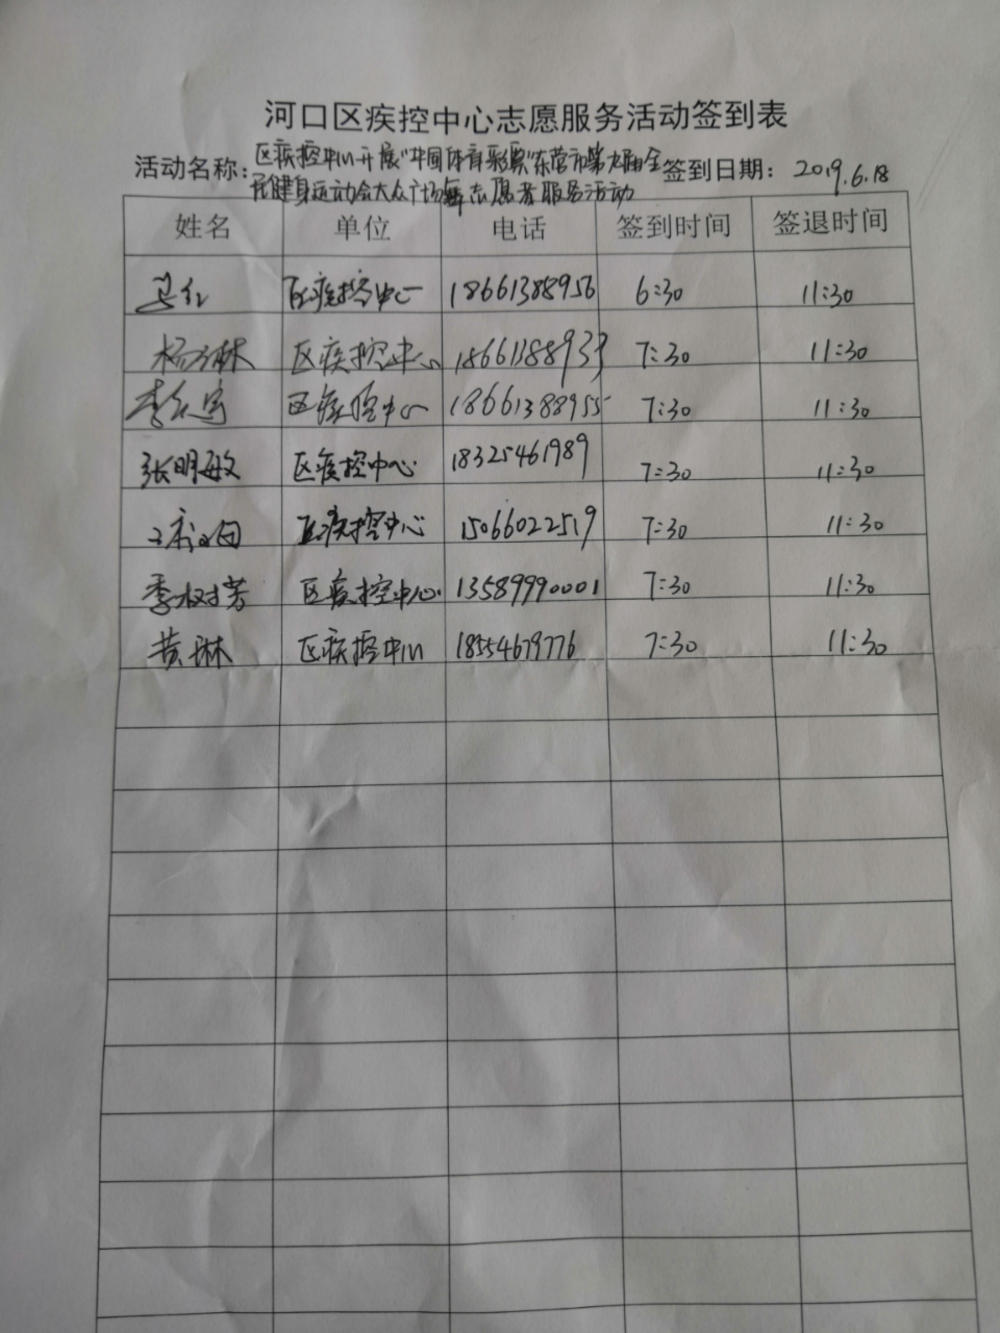 河口区疾控中心志愿服务活动签到表
活动名称：区疾控中心开展"中国体育彩票"东营市第九届全 签到日期：2019.6.18
民健身运动会大众广场舞志愿者服务活动
姓名 单位 电话 签到时间 签退时间
区疾控中心 18661388956 6:30 11:30
杨琳 区疾控中心 18661388933 7:30 11:30
区疾控中心 18661388955 7:30 11:30
张明敏 区疾控中心 18325461989 7:30 11:30
区疾控中心 15066022519 7:30 11:30
季树芳 区疾控中心 13589990001 7:30 11:30
黄琳 区疾控中心 18554679776 7:30 11:30